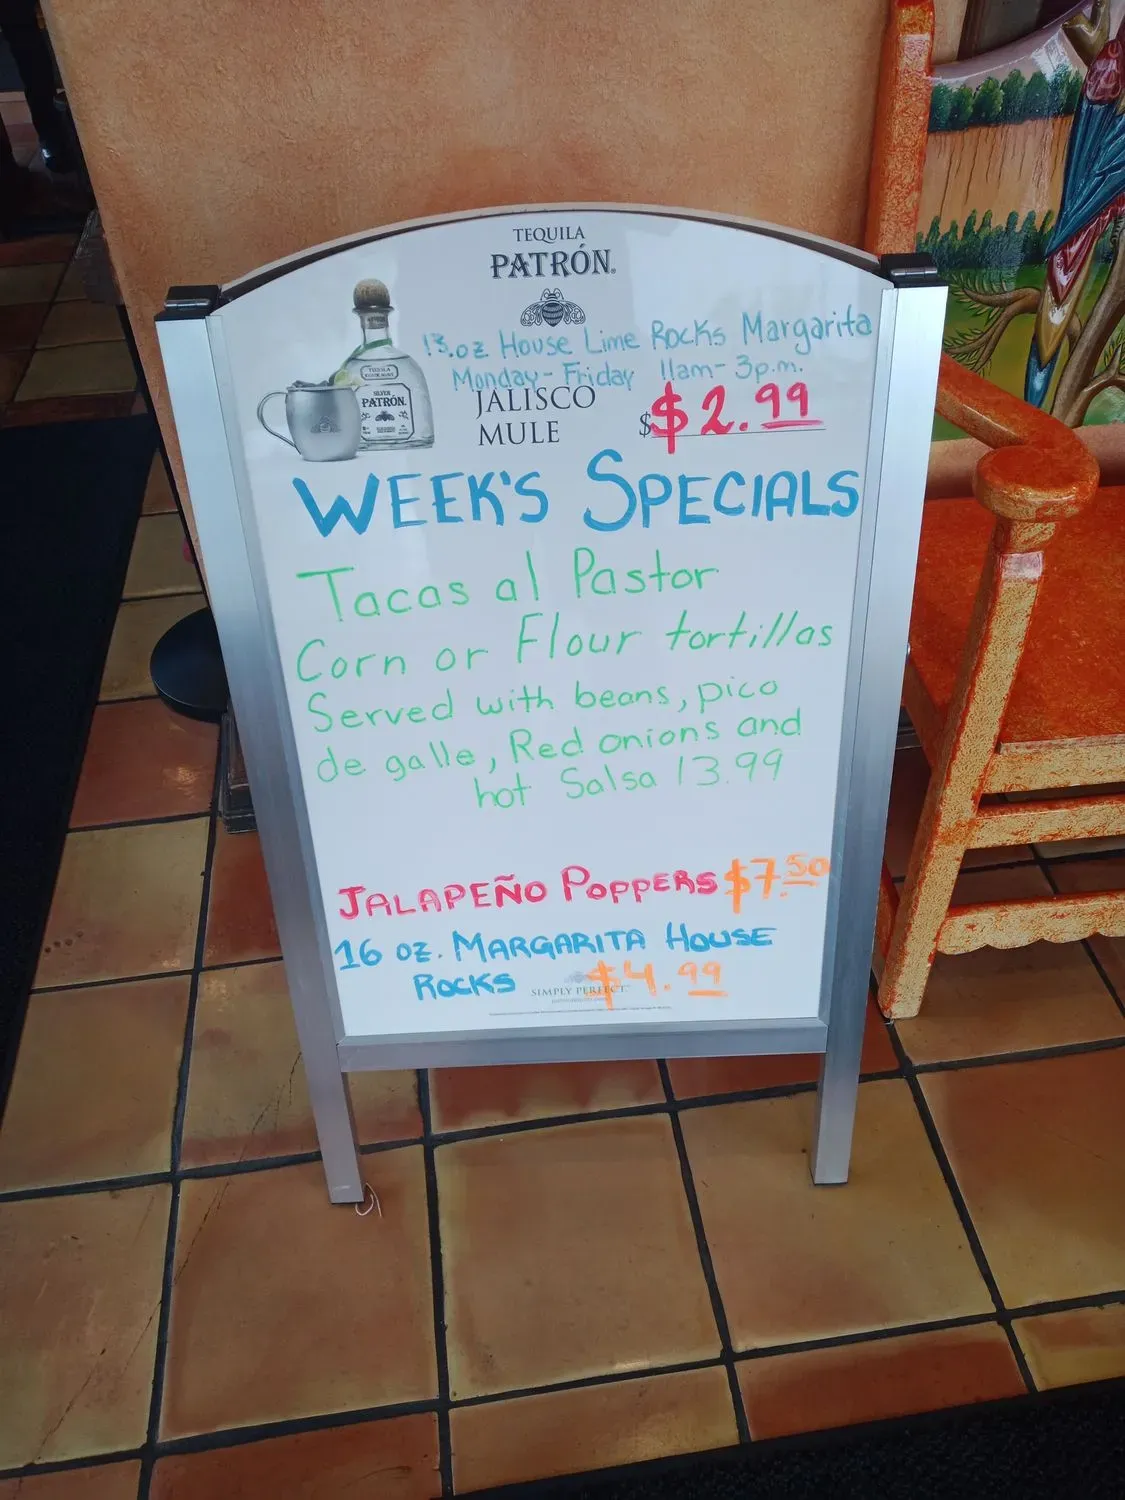 TEQUILA
PATRÓN
13.oz House Lime Rocks Margarita
Monday-Friday 11am-3p.m.
JALISCO
MULE
$ $2.99
TEQUILA
SILVER
PATRÓN
WEEK'S SPECIALS
Tacas al Pastor
Corn or Flour tortillas
Served with beans, pico
de galle, Red onions and
hot Salsa 13.99
JALAPEÑO POPPERS $7.50
16 oz. MARGARITA HOUSE
ROCKS $4.99
SIMPLY PERFECT